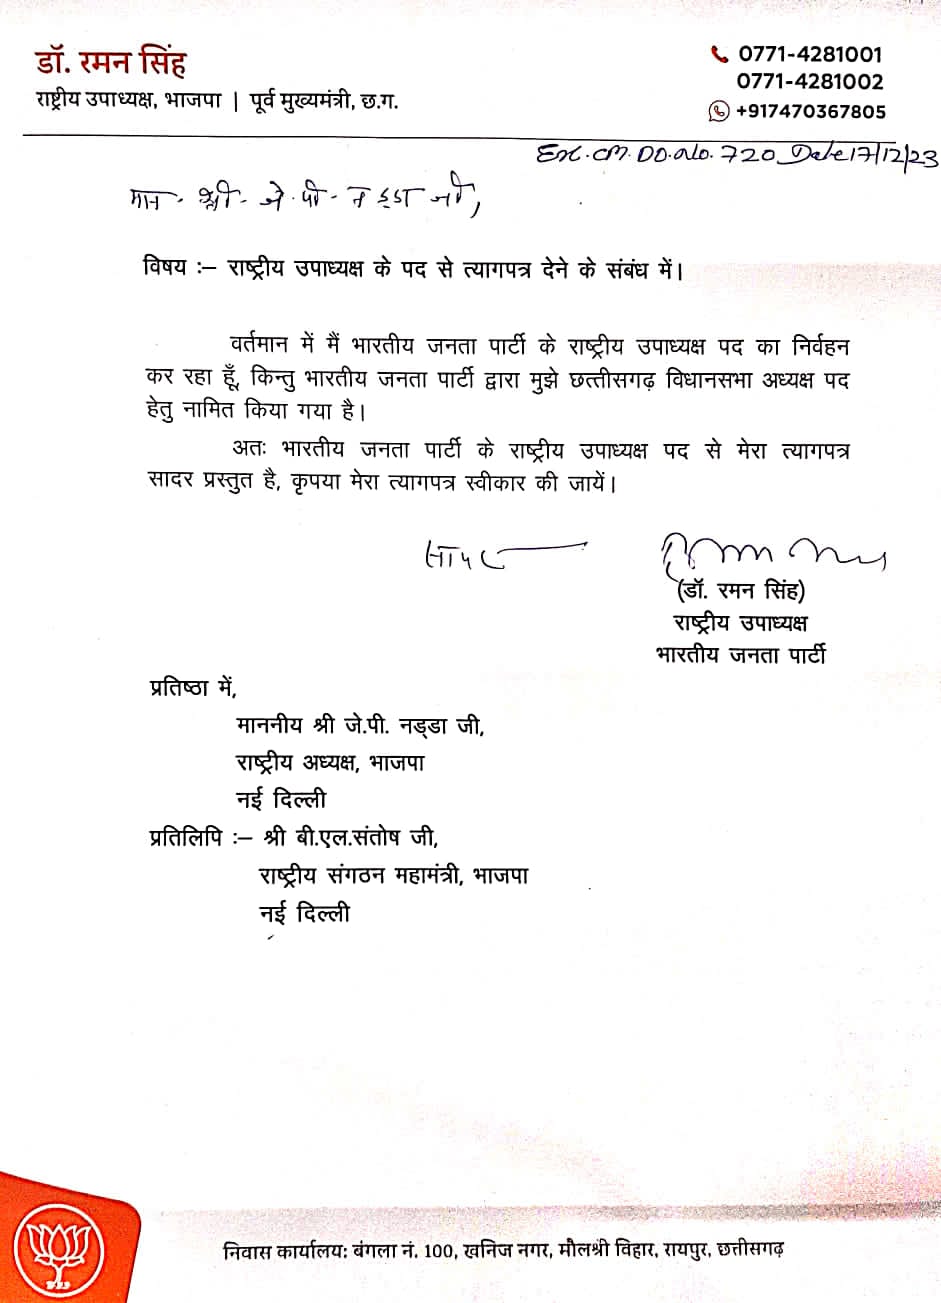 डॉ. रमन सिंह
राष्ट्रीय उपाध्यक्ष, भाजपा | पूर्व मुख्यमंत्री, छ.ग.
0771-4281001
0771-4281002
+917470367805
Ex. CM. DO. No. 720 Date 17/12/23
मान. श्री. जे. पी. नड्डा जी,
विषय :– राष्ट्रीय उपाध्यक्ष के पद से त्यागपत्र देने के संबंध में।
वर्तमान में मैं भारतीय जनता पार्टी के राष्ट्रीय उपाध्यक्ष पद का निर्वहन
कर रहा हूँ, किन्तु भारतीय जनता पार्टी द्वारा मुझे छत्तीसगढ़ विधानसभा अध्यक्ष पद
हेतु नामित किया गया है।
अतः भारतीय जनता पार्टी के राष्ट्रीय उपाध्यक्ष पद से मेरा त्यागपत्र
सादर प्रस्तुत है, कृपया मेरा त्यागपत्र स्वीकार की जायें।
सादर
(डॉ. रमन सिंह)
राष्ट्रीय उपाध्यक्ष
भारतीय जनता पार्टी
प्रतिष्ठा में,
माननीय श्री जे.पी. नड्डा जी,
राष्ट्रीय अध्यक्ष, भाजपा
नई दिल्ली
प्रतिलिपि :– श्री बी.एल.संतोष जी,
राष्ट्रीय संगठन महामंत्री, भाजपा
नई दिल्ली
निवास कार्यालय: बंगला नं. 100, खनिज नगर, मौलश्री विहार, रायपुर, छत्तीसगढ़